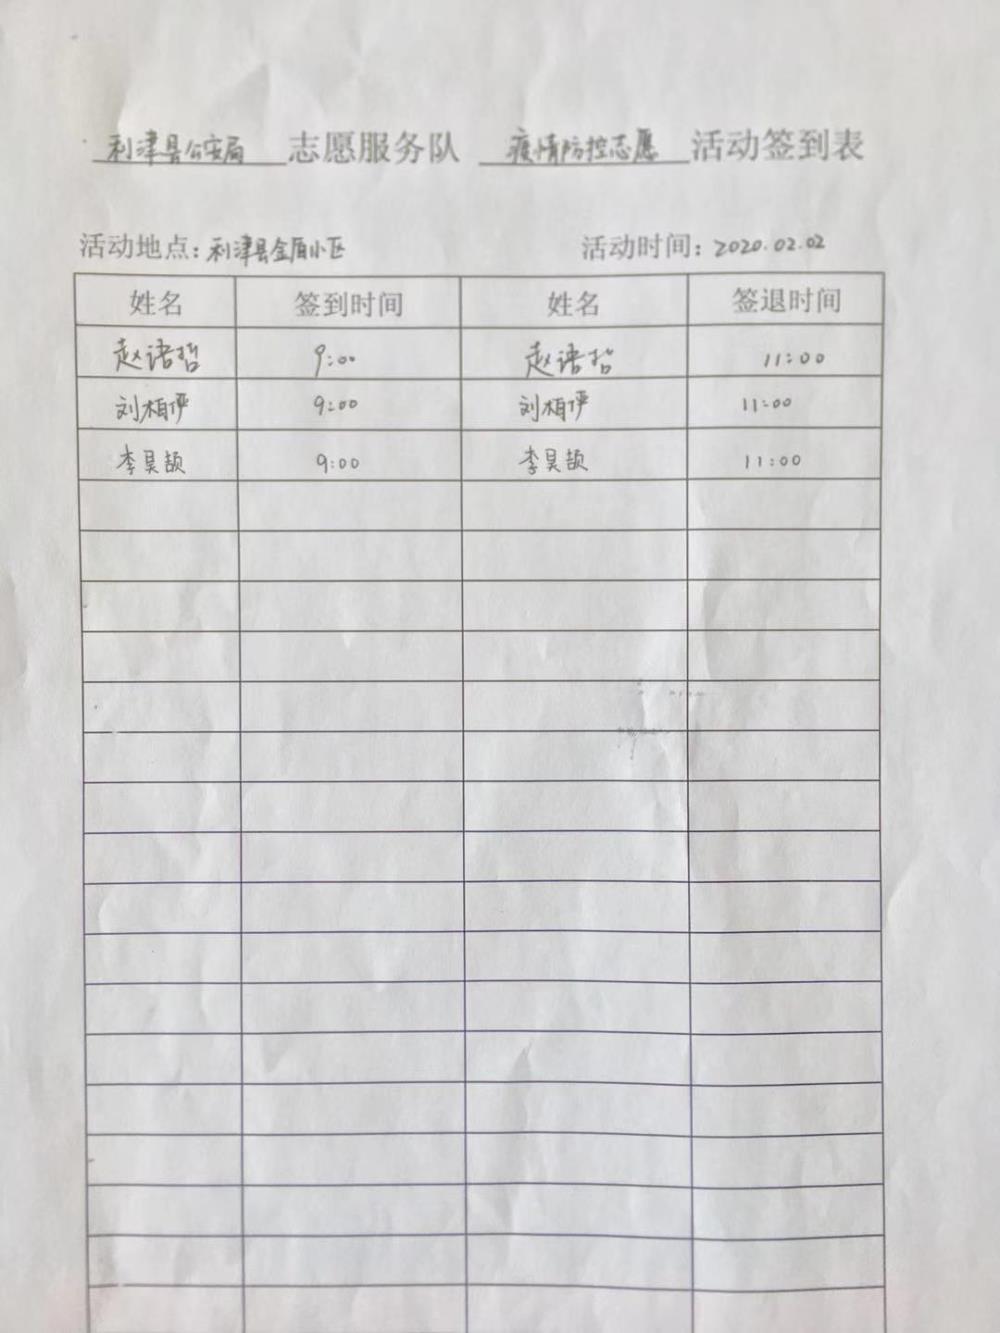 利津县公安局 志愿服务队 疫情防控志愿 活动签到表
活动地点：利津县金盾小区 活动时间：2020.02.02
姓名 签到时间 姓名 签退时间
赵语哲 9:00 赵语哲 11:00
刘柏伊 9:00 刘柏伊 11:00
李昊颉 9:00 李昊颉 11:00